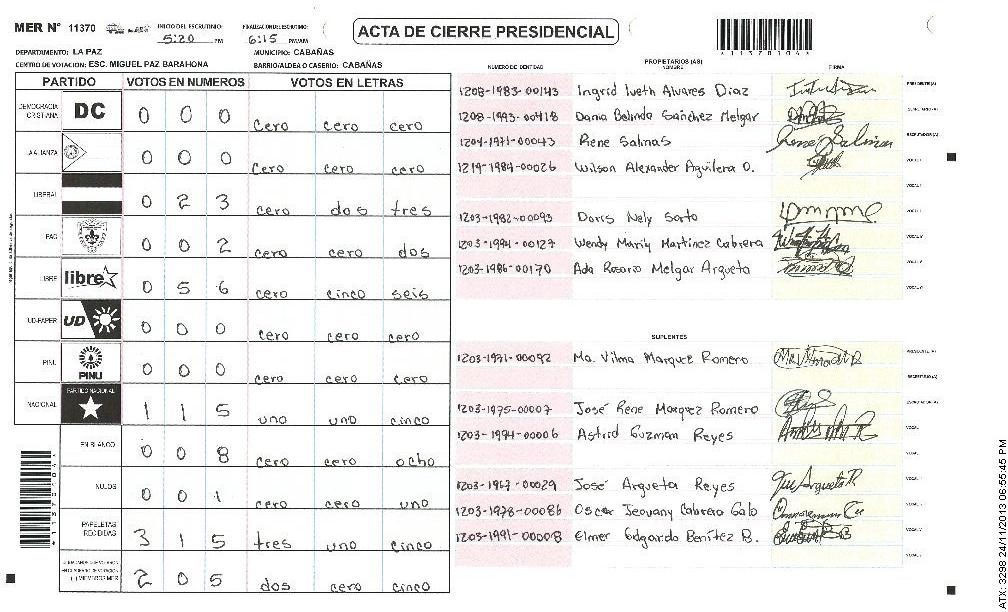 MER N° 11370 INICIO DEL ESCRUTINIO: 5:20 PM FINALIZACION DEL ESCRUTINIO: 6:15 PM/AM
ACTA DE CIERRE PRESIDENCIAL
*11370104*
DEPARTAMENTO: LA PAZ MUNICIPIO: CABAÑAS
CENTRO DE VOTACION: ESC. MIGUEL PAZ BARAHONA BARRIO/ALDEA O CASERIO: CABAÑAS
PARTIDO VOTOS EN NUMEROS VOTOS EN LETRAS
DEMOCRACIA CRISTIANA DC 0 0 0 cero cero cero
LA ALIANZA 0 0 0 cero cero cero
LIBERAL 0 2 3 cero dos tres
PAC 0 0 2 cero cero dos
LIBRE libre 0 5 6 cero cinco seis
UD-FAPER UD 0 0 0 cero cero cero
PINU PINU 0 0 0 cero cero cero
NACIONAL PARTIDO NACIONAL 1 1 5 uno uno cinco
EN BLANCO 0 0 8 cero cero ocho
NULOS 0 0 1 cero cero uno
PAPELETAS RECIBIDAS 3 1 5 tres uno cinco
(-) MIEMBROS MER 2 0 5 dos cero cinco
*11370104*
PROPIETARIOS (AS)
NUMERO DE IDENTIDAD NOMBRE FIRMA
1208-1983-00143 Ingrid Iveth Alvares Diaz PRESIDENTE(A)
1208-1993-00418 Dania Belinda Sanchez Melgar SECRETARIO(A)
1204-1971-00043 Rene Salinas Rene Salinas ESCRUTADOR(A)
1219-1984-00026 Wilson Alexander Aguilera O. VOCAL I
1203-1982-00093 Doris Nely Sorto
1203-1994-00127 Wendy Marily Martinez Cabrera
1203-1986-00170 Ada Rosario Melgar Argueta
SUPLENTES
1203-1971-00092 Ma. Vilma Marquez Romero PRESIDENTE (A)
SECRETARIO(A)
1203-1975-00007 José Rene Marquez Romero ESCRUTADOR(A)
1203-1994-00006 Astrid Guzman Reyes
1203-1967-00029 José Argueta Reyes
1203-1978-00086 Oscar Jeovany Cabrera Galo
1203-1991-00008 Elmer Edgardo Benítez B.
ATX: 3298 24/11/2013 06:55:45 PM